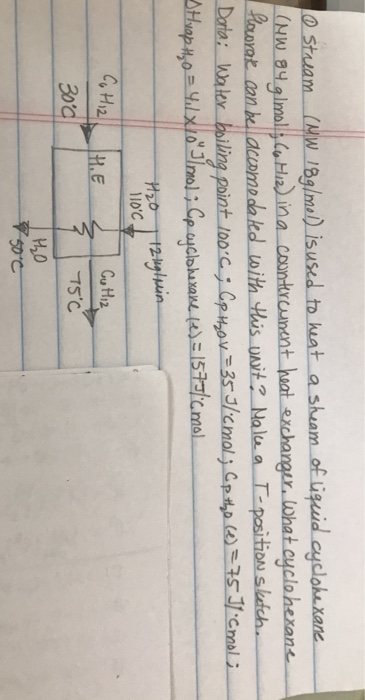 ① Stream (MW 18g/mol) is used to heat a stream of liquid cyclohexane
(MW 84 g/mol; C6H12) in a countercurrent heat exchanger. What cyclohexane
flowrate can be accomodated with this unit? Make a T-position sketch.
Data: Water boiling point 100°C; Cp H2O v = 35 J/°C mol; Cp H2O (l) = 75 J/°C mol;
ΔHvap H2O = 4.1 x 10⁴ J/mol; Cp cyclohexane (l) = 157 J/°C mol
H2O 12 kg/min
110°C
C6H12 H.E C6H12
30°C 75°C
H2O
50°C